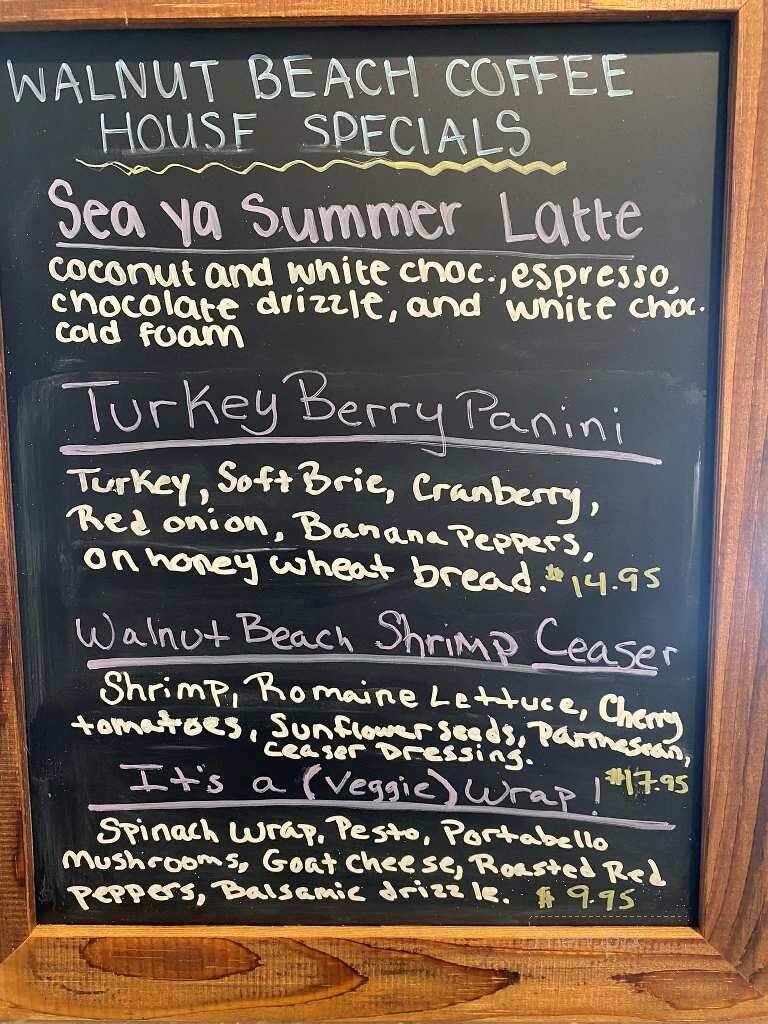 WALNUT BEACH COFFEE
HOUSE SPECIALS
Sea ya Summer Latte
coconut and white choc., espresso,
chocolate drizzle, and white choc.
cold foam
Turkey Berry Panini
Turkey, Soft Brie, Cranberry,
Red onion, Banana Peppers,
on honey wheat bread. $14.95
Walnut Beach Shrimp Ceaser
Shrimp, Romaine Lettuce, Cherry
tomatoes, Sunflower seeds, Parmesean,
Ceaser Dressing.
It's a (Veggie) Wrap! $17.95
Spinach Wrap, Pesto, Portabello
Mushrooms, Goat Cheese, Roasted Red
peppers, Balsamic drizzle. $9.95